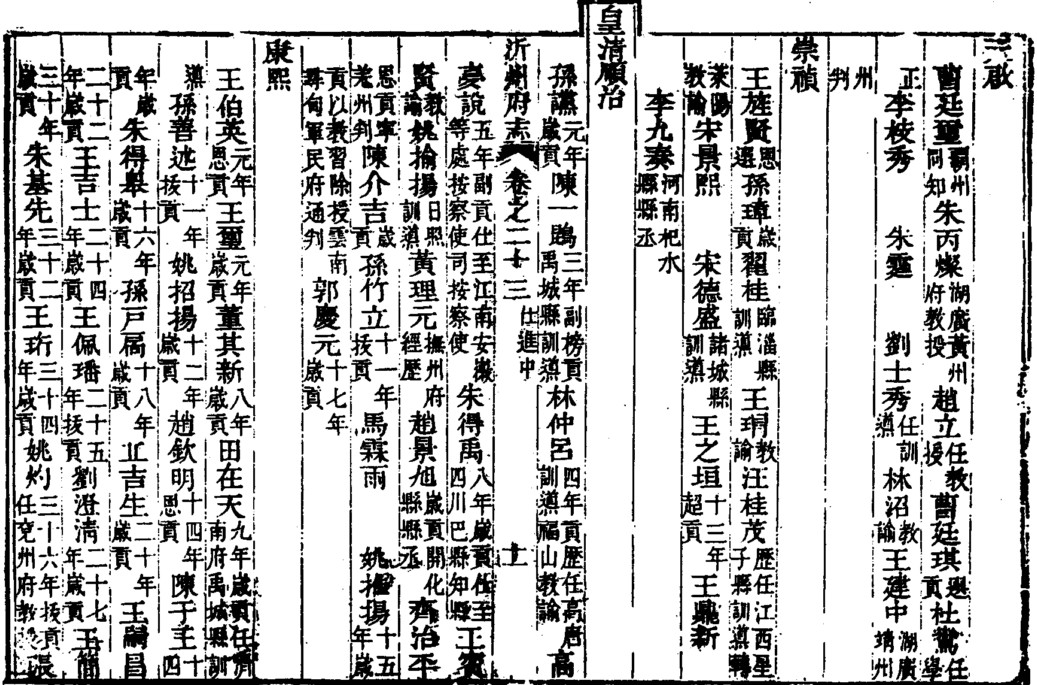 啟
曹廷璽 霸州同知 朱丙燦 湖廣黃州府教授 趙立 任教授 曹廷琪 選貢 杜 任學
正 李桉秀 朱霆 劉士秀 任訓導 林沼 教諭 王建中 湖廣靖州
州判
崇禎
王旌賢 恩選 孫璋 歲貢 翟桂 臨淄縣訓導 王珦 教諭 汪桂茂 歷任江西星子縣訓導轉
萊陽教諭 宋景熙 宋德盛 諸城縣訓導 王之垣 十三年超貢 王鼎新
李九奏 河南杞水縣縣丞
皇清順治
孫讜 元年歲貢 陳一鶚 三年副榜貢禹城縣訓導 林仲呂 四年貢歷任高唐訓導福山教諭 高
沂州府志 卷之二十三 仕進中 十一
夔說 五年副貢仕至江南安徽等處按察使司按察使 朱得禹 八年歲貢仕至四川巴縣知縣 王賓
賢 教諭 姚掄揚 日照訓導 黃理元 撫州府經歷 趙景旭 歲貢開化縣縣丞 齊治平
恩貢寧羌州判 陳介吉 歲貢 孫竹立 十一年拔貢 馬霖雨 姚擢揚 十五年歲
貢以教習除授雲南尋甸軍民府通判 郭慶元 十七年歲貢
康熙
王伯英 元年恩貢 王璽 元年歲貢 董其新 八年歲貢 田在天 九年歲貢任濟南府禹城縣訓
導 孫善述 十一年拔貢 姚招揚 十二年歲貢 趙欽明 十四年恩貢 陳于王 十四
年歲貢 朱得舉 十六年歲貢 孫戶 十八年歲貢 吉生 二十年歲貢 王嗣昌
二十二年歲貢 王吉士 二十四年歲貢 王佩璠 二十五年拔貢 劉澄清 二十七年歲貢 王簡
三十年歲貢 朱基先 三十二年歲貢 王珩 三十四年歲貢 姚灼 三十六年拔貢任兗州府教 張